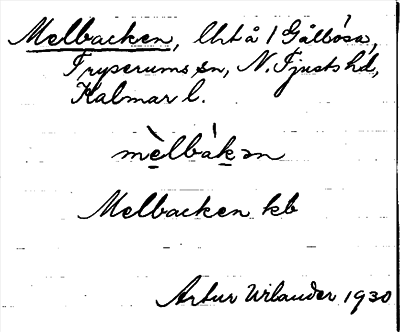 Melbacken, lht å 1 Gålösa,
Tryserums sn, N. Tjusts hd,
Kalmar l.
mèlbákən
Melbacken kb
Artur Wilander 1930